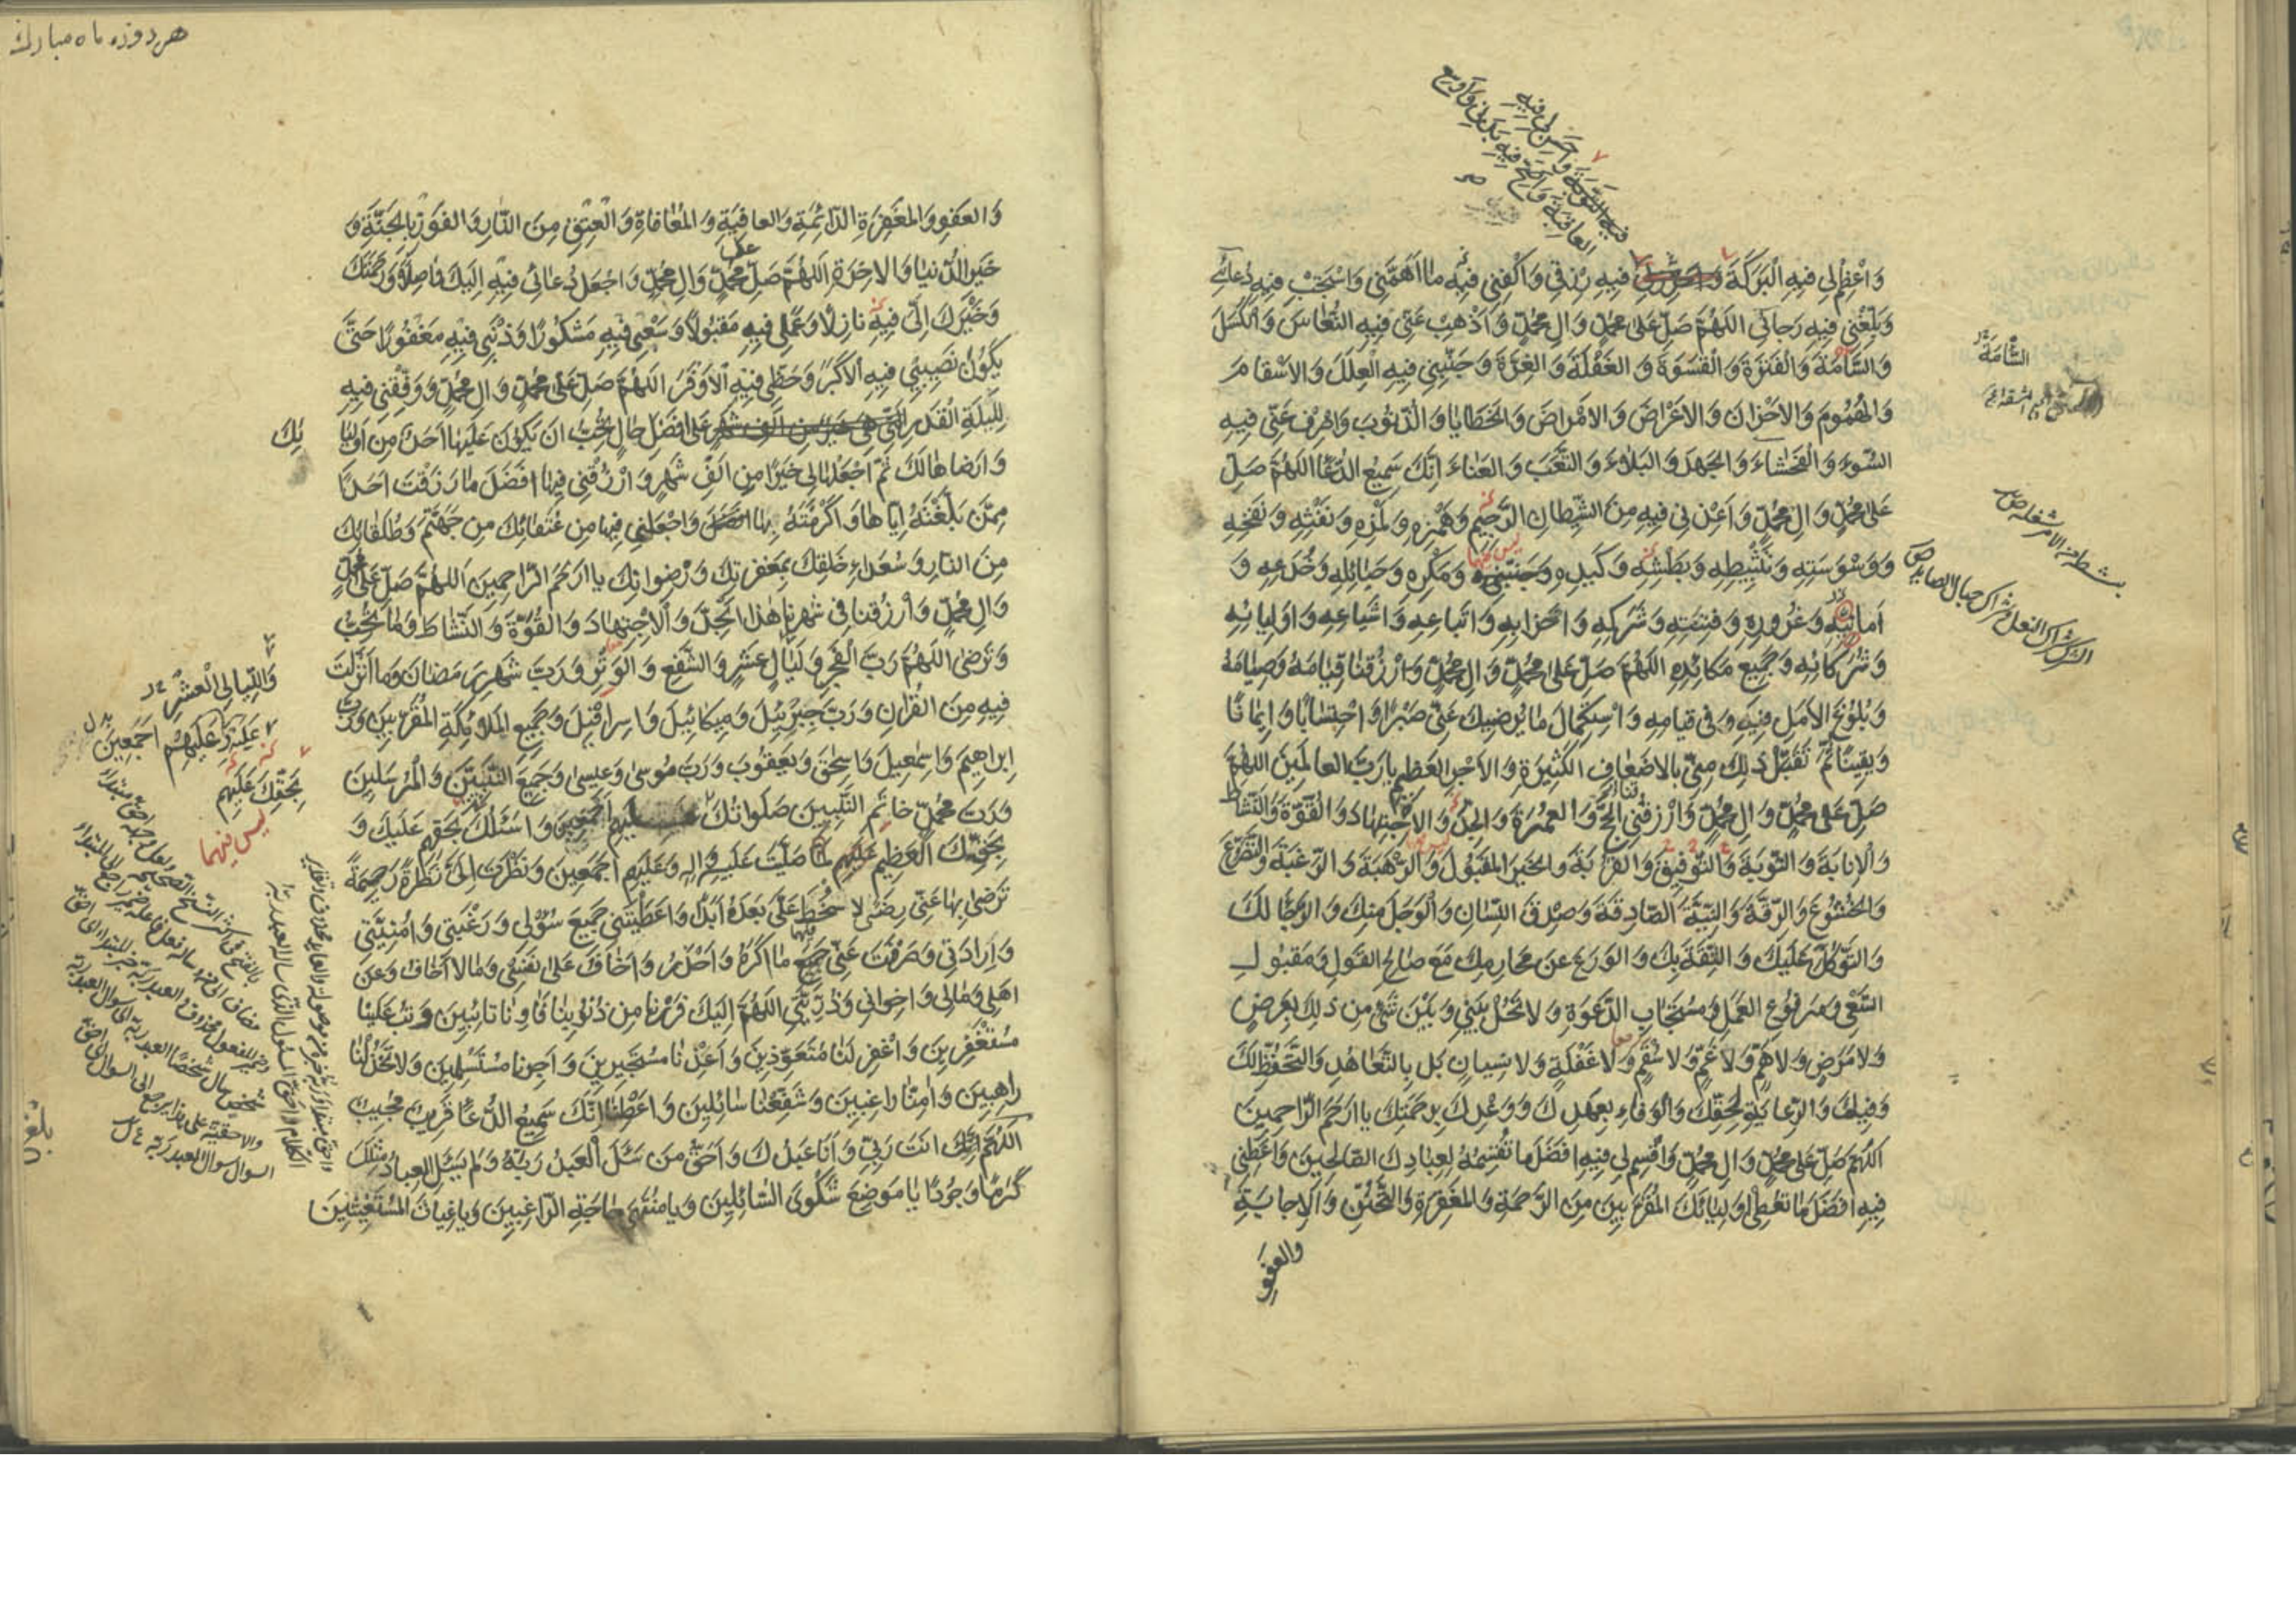 فيه التوبة واحسن لي فيه
العاقبة واصح فيه بدني واوسع
وَاَعْظِمْ لِي فِيهِ الْبَرَكَةَ فِيهِ رِزْقِي وَاكْفِنِي فِيْهِ مَا اَهَمَّنِي وَاسْتَجِبْ فِيهِ دُعَائِي
وَبَلِّغْنِي فِيهِ رَجَائِي اَللّهُمَّ صَلِّ عَلَى مُحَمَّدٍ وَآلِ مُحَمَّدٍ وَاَذْهِبْ عَنِّي فِيهِ النُّعَاسَ وَالْكَسَلَ
وَالسَّامَةَ وَالْفَتْرَةَ وَالْقَسْوَةَ وَالْغَفْلَةَ وَالْغِرَّةَ وَجَنِّبْنِي فِيهِ الْعِلَلَ وَالاَسْقَامَ
وَالْهُمُومَ وَالاَحْزَانَ وَالاَعْرَاضَ وَالاَمْرَاضَ وَالْخَطَايَا وَالذُّنُوبَ وَاصْرِفْ عَنِّي فِيهِ
السُّوءَ وَالْفَحْشَاءَ وَالْجَهْدَ وَالْبَلَاءَ وَالتَّعَبَ وَالْعَنَاءَ اِنَّكَ سَمِيعُ الدُّعَاءِ اَللّهُمَّ صَلِّ
عَلَى مُحَمَّدٍ وَآلِ مُحَمَّدٍ وَاَعِذْنِي فِيهِ مِنَ الشَّيْطَانِ الرَّجِيمِ وَهَمْزِهِ وَلَمْزِهِ وَنَفْثِهِ وَنَفْخِهِ
وَوَسْوَسَتِهِ وَتَثْبِيطِهِ وَبَطْشِهِ وَكَيْدِهِ وَمَكْرِهِ وَحَبَائِلِهِ وَخُدَعِهِ وَ
اَمَانِيِّهِ وَغُرُورِهِ وَفِتْنَتِهِ وَشَرَكِهِ وَاَحْزَابِهِ وَاَتْبَاعِهِ وَاَشْيَاعِهِ وَاَوْلِيَائِهِ
وَشُرَكَائِهِ وَجَمِيعِ مَكَائِدِهِ اَللّهُمَّ صَلِّ عَلَى مُحَمَّدٍ وَآلِ مُحَمَّدٍ وَارْزُقْنَا قِيَامَهُ وَصِيَامَهُ
وَبُلُوغَ الاَمَلِ فِيهِ وَفِي قِيَامِهِ وَاسْتِكْمَالَ مَا يُرْضِيكَ عَنِّي صَبْراً وَاحْتِسَاباً وَاِيمَاناً
وَيَقِيناً ثُمَّ تَقَبَّلْ ذَلِكَ مِنِّي بِالاَضْعَافِ الْكَثِيرَةِ وَالاَجْرِ الْعَظِيمِ يَا رَبَّ الْعَالَمِينَ اَللّهُمَّ
صَلِّ عَلَى مُحَمَّدٍ وَآلِ مُحَمَّدٍ وَارْزُقْنِي الْحَجَّ وَالْعُمْرَةَ وَالْجِدَّ وَالاِجْتِهَادَ وَالْقُوَّةَ وَالنَّشَاطَ
وَالاِنَابَةَ وَالتَّوْبَةَ وَالتَّوْفِيقَ وَالْقُرْبَةَ وَالْخَيْرَ الْمَقْبُولَ وَالرَّهْبَةَ وَالرَّغْبَةَ وَالتَّضَرُّعَ
وَالْخُشُوعَ وَالرِّقَّةَ وَالنِّيَّةَ الصَّادِقَةَ وَصِدْقَ اللِّسَانِ وَالْوَجَلَ مِنْكَ وَالرَّجَاءَ لَكَ
وَالتَّوَكُّلَ عَلَيْكَ وَالثِّقَةَ بِكَ وَالْوَرَعَ عَنْ مَحَارِمِكَ مَعَ صَالِحِ الْقَوْلِ وَمَقْبُولِ
السَّعْيِ وَمَرْفُوعِ الْعَمَلِ وَمُسْتَجَابِ الدَّعْوَةِ وَلَا تَحُلْ بَيْنِي وَبَيْنَ شَيْءٍ مِنْ ذَلِكَ بِعَرَضٍ
وَلَا مَرَضٍ وَلَا هَمٍّ وَلَا غَمٍّ وَلَا سُقْمٍ وَلَا غَفْلَةٍ وَلَا نِسْيَانٍ بَلْ بِالتَّعَاهُدِ وَالتَّحَفُّظِ لَكَ
وَفِيكَ وَالرِّعَايَةِ لِحَقِّكَ وَالْوَفَاءِ بِعَهْدِكَ وَوَعْدِكَ بِرَحْمَتِكَ يَا اَرْحَمَ الرَّاحِمِينَ
اَللّهُمَّ صَلِّ عَلَى مُحَمَّدٍ وَآلِ مُحَمَّدٍ وَاقْسِمْ لِي فِيهِ اَفْضَلَ مَا تَقْسِمُهُ لِعِبَادِكَ الصَّالِحِينَ وَاَعْطِنِي
فِيهِ اَفْضَلَ مَا تُعْطِي اَوْلِيَائَكَ الْمُقَرَّبِينَ مِنَ الرَّحْمَةِ وَالْمَغْفِرَةِ وَالتَّحَنُّنِ وَالاِجَابَةِ
والعفو
السَّامَةَ
هر دوزه ماه مبارك
وَالْعَفْوِ وَالْمَغْفِرَةِ الدَّائِمَةِ وَالْعَافِيَةِ وَالْمُعَافَاةِ وَالْعِتْقِ مِنَ النَّارِ وَالْفَوْزِ بِالْجَنَّةِ وَ
خَيْرِ الدُّنْيَا وَالآخِرَةِ اَللّهُمَّ صَلِّ عَلَى مُحَمَّدٍ وَآلِ مُحَمَّدٍ وَاجْعَلْ دُعَائِي فِيهِ اِلَيْكَ وَاصِلاً وَرَحْمَتَكَ
وَخَيْرَكَ اِلَيَّ فِيهِ نَازِلاً وَعَمَلِي فِيهِ مَقْبُولاً وَسَعْيِي فِيهِ مَشْكُوراً وَذَنْبِي فِيهِ مَغْفُوراً حَتَّى
يَكُونَ نَصِيبِي فِيهِ الاَكْبَرَ وَحَظِّي فِيهِ الاَوْفَرَ اَللّهُمَّ صَلِّ عَلَى مُحَمَّدٍ وَآلِ مُحَمَّدٍ وَوَفِّقْنِي فِيهِ
لِلَيْلَةِ الْقَدْرِ عَلَى اَفْضَلِ حَالٍ تُحِبُّ اَنْ يَكُونَ عَلَيْهَا اَحَدٌ مِنْ اَوْلِيَا
ئِكَ
وَاَرْضَاهَا لَكَ ثُمَّ اجْعَلْهَا لِي خَيْراً مِنْ اَلْفِ شَهْرٍ وَارْزُقْنِي فِيهَا اَفْضَلَ مَا رَزَقْتَ اَحَداً
مِمَّنْ بَلَّغْتَهُ اِيَّاهَا وَاَكْرَمْتَهُ بِهَا وَاجْعَلْنِي فِيهَا مِنْ عُتَقَائِكَ مِنْ جَهَنَّمَ وَطُلَقَائِكَ
مِنَ النَّارِ وَسُعَدَاءِ خَلْقِكَ بِمَغْفِرَتِكَ وَرِضْوَانِكَ يَا اَرْحَمَ الرَّاحِمِينَ اَللّهُمَّ صَلِّ عَلَى مُحَمَّدٍ
وَآلِ مُحَمَّدٍ وَارْزُقْنَا فِي شَهْرِنَا هَذَا الْجِدَّ وَالاِجْتِهَادَ وَالْقُوَّةَ وَالنَّشَاطَ وَمَا تُحِبُّ
وَتَرْضَى اَللّهُمَّ رَبَّ الْفَجْرِ وَلَيَالٍ عَشْرٍ وَالشَّفْعِ وَالْوَتْرِ وَرَبَّ شَهْرِ رَمَضَانَ وَمَا اَنْزَلْتَ
فِيهِ مِنَ الْقُرْآنِ وَرَبَّ جَبْرَئِيلَ وَمِيكَائِيلَ وَاِسْرَافِيلَ وَجَمِيعِ الْمَلَائِكَةِ الْمُقَرَّبِينَ وَرَبَّ
اِبْرَاهِيمَ وَاِسْمَعِيلَ وَاِسْحَقَ وَيَعْقُوبَ وَرَبَّ مُوسَى وَعِيسَى وَجَمِيعِ النَّبِيِّينَ وَالْمُرْسَلِينَ
وَرَبَّ مُحَمَّدٍ خَاتَمِ النَّبِيِّينَ صَلَوَاتُكَ اَجْمَعِينَ وَاَسْئَلُكَ بِحَقِّهِمْ عَلَيْكَ وَ
بِحَقِّكَ الْعَظِيمِ لَمَّا صَلَّيْتَ عَلَيْهِ وَآلِهِ وَعَلَيْهِمْ اَجْمَعِينَ وَنَظَرْتَ اِلَيَّ نَظْرَةً رَحِيمَةً
تَرْضَى بِهَا عَنِّي رِضًى لَا سَخَطَ عَلَيَّ بَعْدَهُ اَبَداً وَاَعْطَيْتَنِي جَمِيعَ سُؤْلِي وَرَغْبَتِي وَاُمْنِيَّتِي
وَاِرَادَتِي وَصَرَفْتَ عَنِّي جَمِيعَ مَا اَكْرَهُ وَاَحْذَرُ وَاَخَافُ عَلَى نَفْسِي وَمَا لَا اَخَافُ وَعَنْ
اَهْلِي وَمَالِي وَاِخْوَانِي وَذُرِّيَّتِي اَللّهُمَّ اِلَيْكَ فَرَرْنَا مِنْ ذُنُوبِنَا فَآوِنَا تَائِبِينَ وَتُبْ عَلَيْنَا
مُسْتَغْفِرِينَ وَاغْفِرْ لَنَا مُتَعَوِّذِينَ وَاَعِذْنَا مُسْتَجِيرِينَ وَاَجِرْنَا مُسْتَسْلِمِينَ وَلَا تَخْذُلْنَا
رَاهِبِينَ وَآمِنَّا رَاغِبِينَ وَشَفِّعْنَا سَائِلِينَ وَاَعْطِنَا اِنَّكَ سَمِيعُ الدُّعَاءِ قَرِيبٌ مُجِيبٌ
اَللّهُمَّ اَنْتَ رَبِّي وَاَنَا عَبْدُكَ وَاَحَقُّ مَنْ سَئَلَ الْعَبْدُ رَبَّهُ وَلَمْ يَسْئَلِ الْعِبَادُ مِثْلَكَ
كَرَماً وَجُوداً يَا مَوْضِعَ شَكْوَى السَّائِلِينَ وَيَا مُنْتَهَى حَاجَةِ الرَّاغِبِينَ وَيَا غِيَاثَ الْمُسْتَغِيثِينَ
وَاللَّيَالِي الْعَشْرِ
عَلَيْهِ وَعَلَيْهِمْ اَجْمَعِينَ
بِحَقِّكَ عَلَيْهِمْ
ليس فيهما